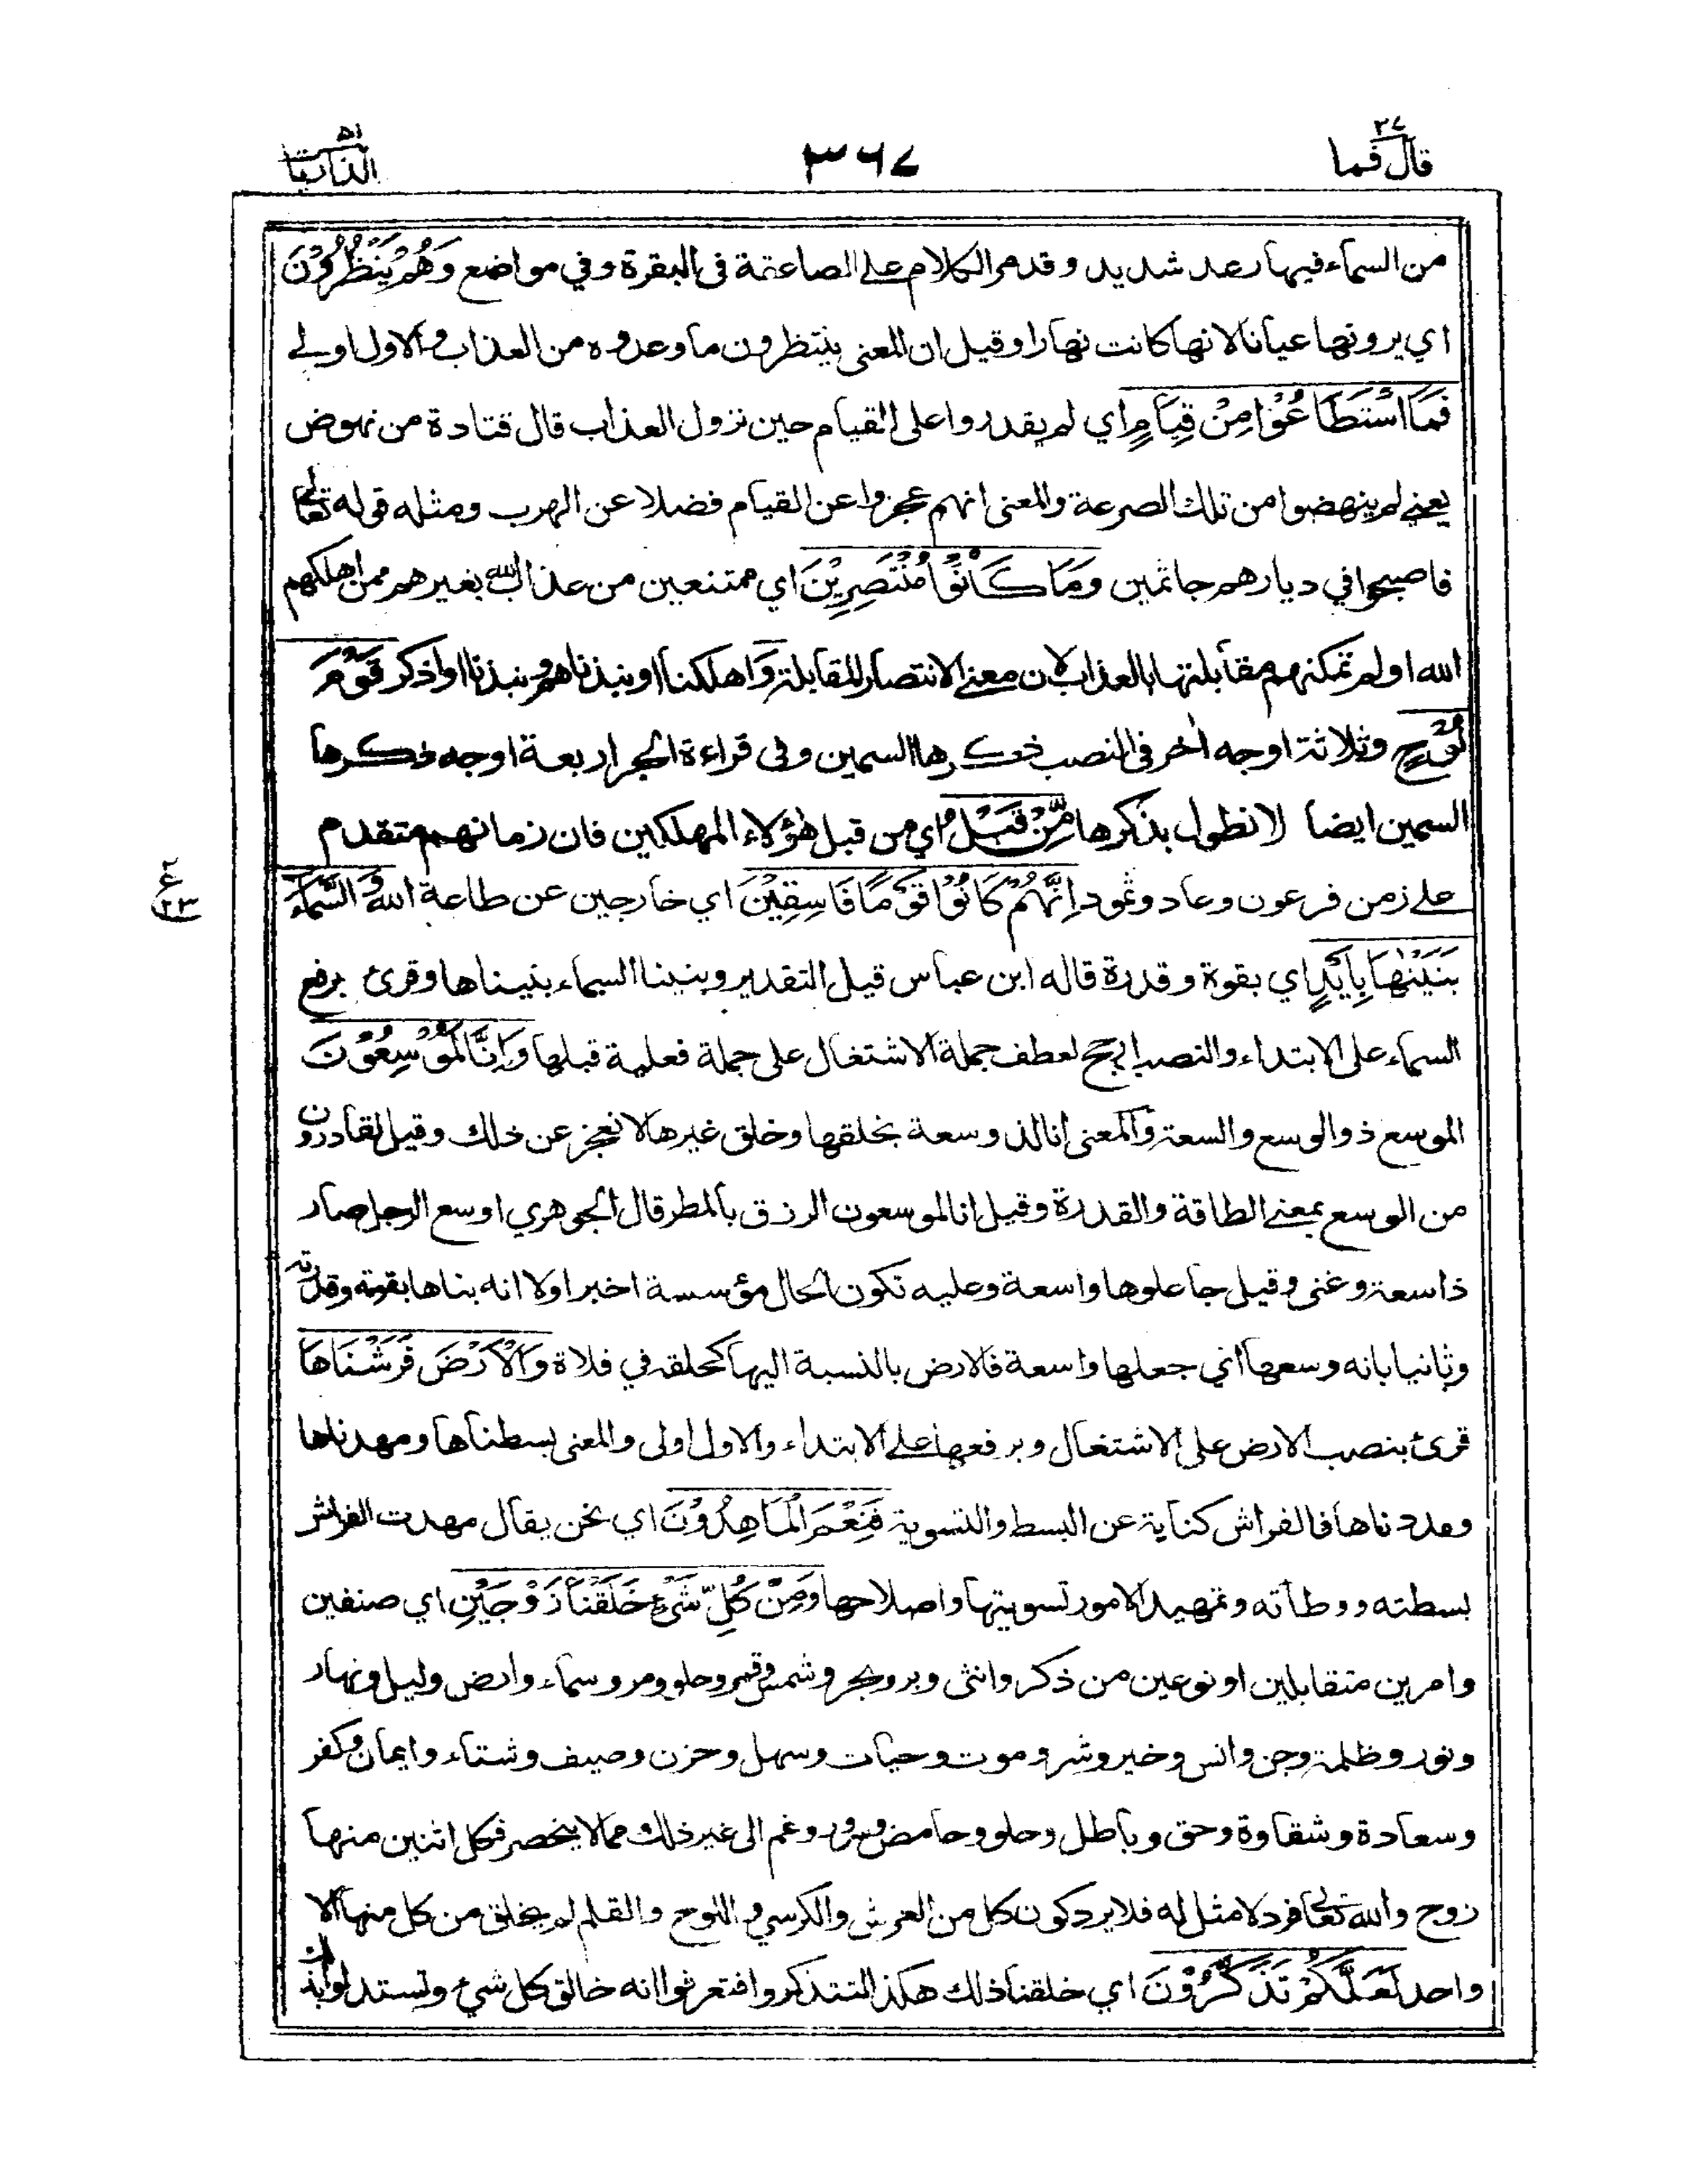 قال فما ٢٧
٣٦٧
الذاريات ٥١
من السماء فيها رعد شديد وقد مر الكلام على الصاعقة فى البقرة وفي مواضع وَهُمْ يَنْظُرُوْنَ
اي يرونها عيانا لانها كانت نهارا وقيل ان المعنى ينتظرون ما وعدوه من العذاب والاول اولى
فَمَا اسْتَطَاعُوْا مِنْ قِيَامٍ اي لم يقدروا على القيام حين نزول العذاب قال قتادة من نهوض
يعني لم ينهضوا من تلك الصرعة والمعنى انهم عجزوا عن القيام فضلا عن الهرب ومثله قوله تعالى
فاصبحوا في ديارهم جاثمين وَمَا كَانُوْا مُنْتَصِرِيْنَ اي ممتنعين من عذاب الله بغيرهم ممن اهلكهم
الله او لم تمكنهم مقابلتها بالعذاب لان معنى الانتصار المقابلة وَ اهلكنا او نبذناهم ونبذنا او اذكر قَوْمَ
نُوْحٍ وثلاثة اوجه اخر فى النصب ذكرها السمين وفى قراءة الجر اربعة اوجه ذكرها
السمين ايضا لا نطول بذكرها مِّنْ قَبْلُ اي من قبل هؤلاء المهلكين فان زمانهم متقدم
على زمن فرعون وعاد وثمود اِنَّهُمْ كَانُوْا قَوْمًا فَاسِقِيْنَ اي خارجين عن طاعة الله وَالسَّمَاءَ
ع ٢٣
بَنَيْنٰهَا بِاَيْدٍ اي بقوة وقدرة قاله ابن عباس قيل التقدير وبنينا السماء بنيناها وقرئ برفع
السماء على الابتداء والنصب ارجح لعطف جملة الاشتغال على جملة فعلية قبلها وَاِنَّا لَمُوْسِعُوْنَ
الموسع ذو الوسع والسعة والمعنى انا لذو سعة بخلقها وخلق غيرها لا نعجز عن ذلك وقيل لقادرون
من الوسع بمعنى الطاقة والقدرة وقيل انا لموسعون الرزق بالمطر قال الجوهري اوسع الرجل صار
ذا سعة وغنى وقيل جاعلوها واسعة وعليه تكون الحال مؤسسة اخبر اولا انه بناها بقوته وقدرته
وثانيا بانه وسعها اي جعلها واسعة فالارض بالنسبة اليها كحلقة في فلاة وَالْاَرْضَ فَرَشْنَاهَا
قرئ بنصب الارض على الاشتغال وبرفعها على الابتداء والاول اولى والمعنى بسطناها ومهدناها
ومددناها فالفراش كناية عن البسط والتسوية فَنِعْمَ الْمَاهِدُوْنَ اي نحن يقال مهدت الفراش
بسطته ووطأته وتمهيد الامور تسويتها واصلاحها وَمِنْ كُلِّ شَيْءٍ خَلَقْنَا زَوْجَيْنِ اي صنفين
وامرين متقابلين او نوعين من ذكر وانثى وبر وبحر وشمس وقمر وحلو ومر وسماء وارض وليل ونهار
ونور وظلمة وجن وانس وخير وشر وموت وحيات وسهل وحزن وصيف وشتاء وايمان وكفر
وسعادة وشقاوة وحق وباطل وحلو وحامض وسرور وغم الى غير ذلك مما لا ينحصر فكل اثنين منها
زوج والله تعالى فرد لا مثل له فلا يرد كون كل من العرش والكرسي واللوح والقلم لم يخلق من كل منها الا
واحد لَعَلَّكُمْ تَذَكَّرُوْنَ اي خلقنا ذلك هكذا لتتذكروا فتعرفوا انه خالق كل شيء وتستدلوا بذلك